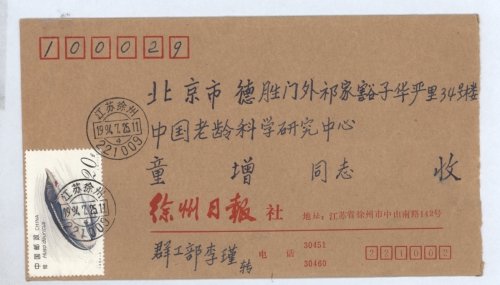 100029
北京市 德胜门外祁家豁子华严里34号楼
中国老龄科学研究中心
童 增 同志 收
江苏徐州
1994.7.25.11
4
221009
20分
江苏徐州
1994.7.25.11
221009
中国邮政 CHINA
徐州日报社 地址:江苏省徐州市中山南路142号
群工部李瑾转 电话 30451 30460
221002